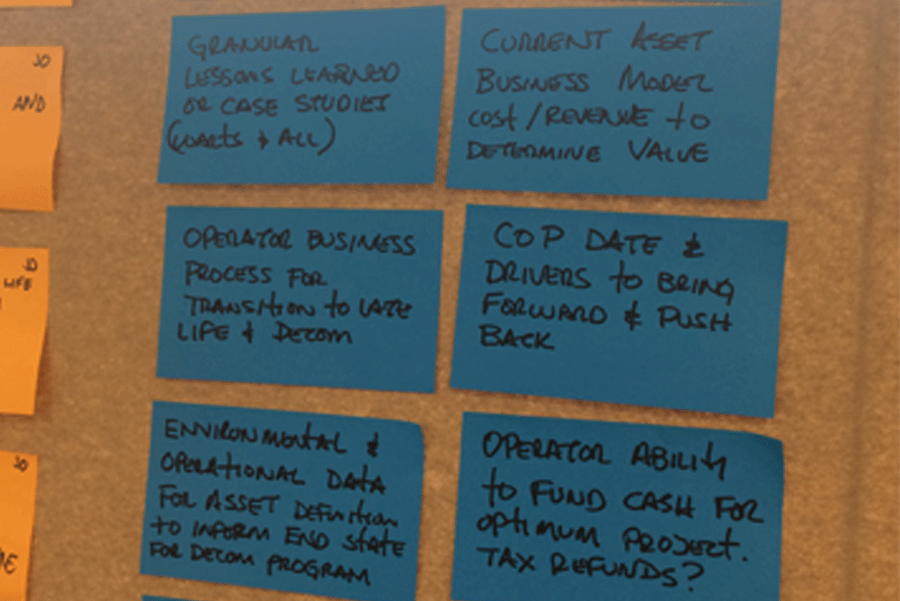 JO
AND
GRANULAR
LESSONS LEARNED
OR CASE STUDIES
(WARTS & ALL)
CURRENT ASSET
BUSINESS MODEL
COST/REVENUE TO
DETERMINE VALUE
JO
LIFE
OPERATOR BUSINESS
PROCESS FOR
TRANSITION TO LATE
LIFE & DECOM
COP DATE &
DRIVERS TO BRING
FORWARD & PUSH
BACK
JO
ENVIRONMENTAL &
OPERATIONAL DATA
FOR ASSET DEFINITION
TO INFORM END STATE
FOR DECOM PROGRAM
OPERATOR ABILITY
TO FUND CASH FOR
OPTIMUM PROJECT.
TAX REFUNDS?